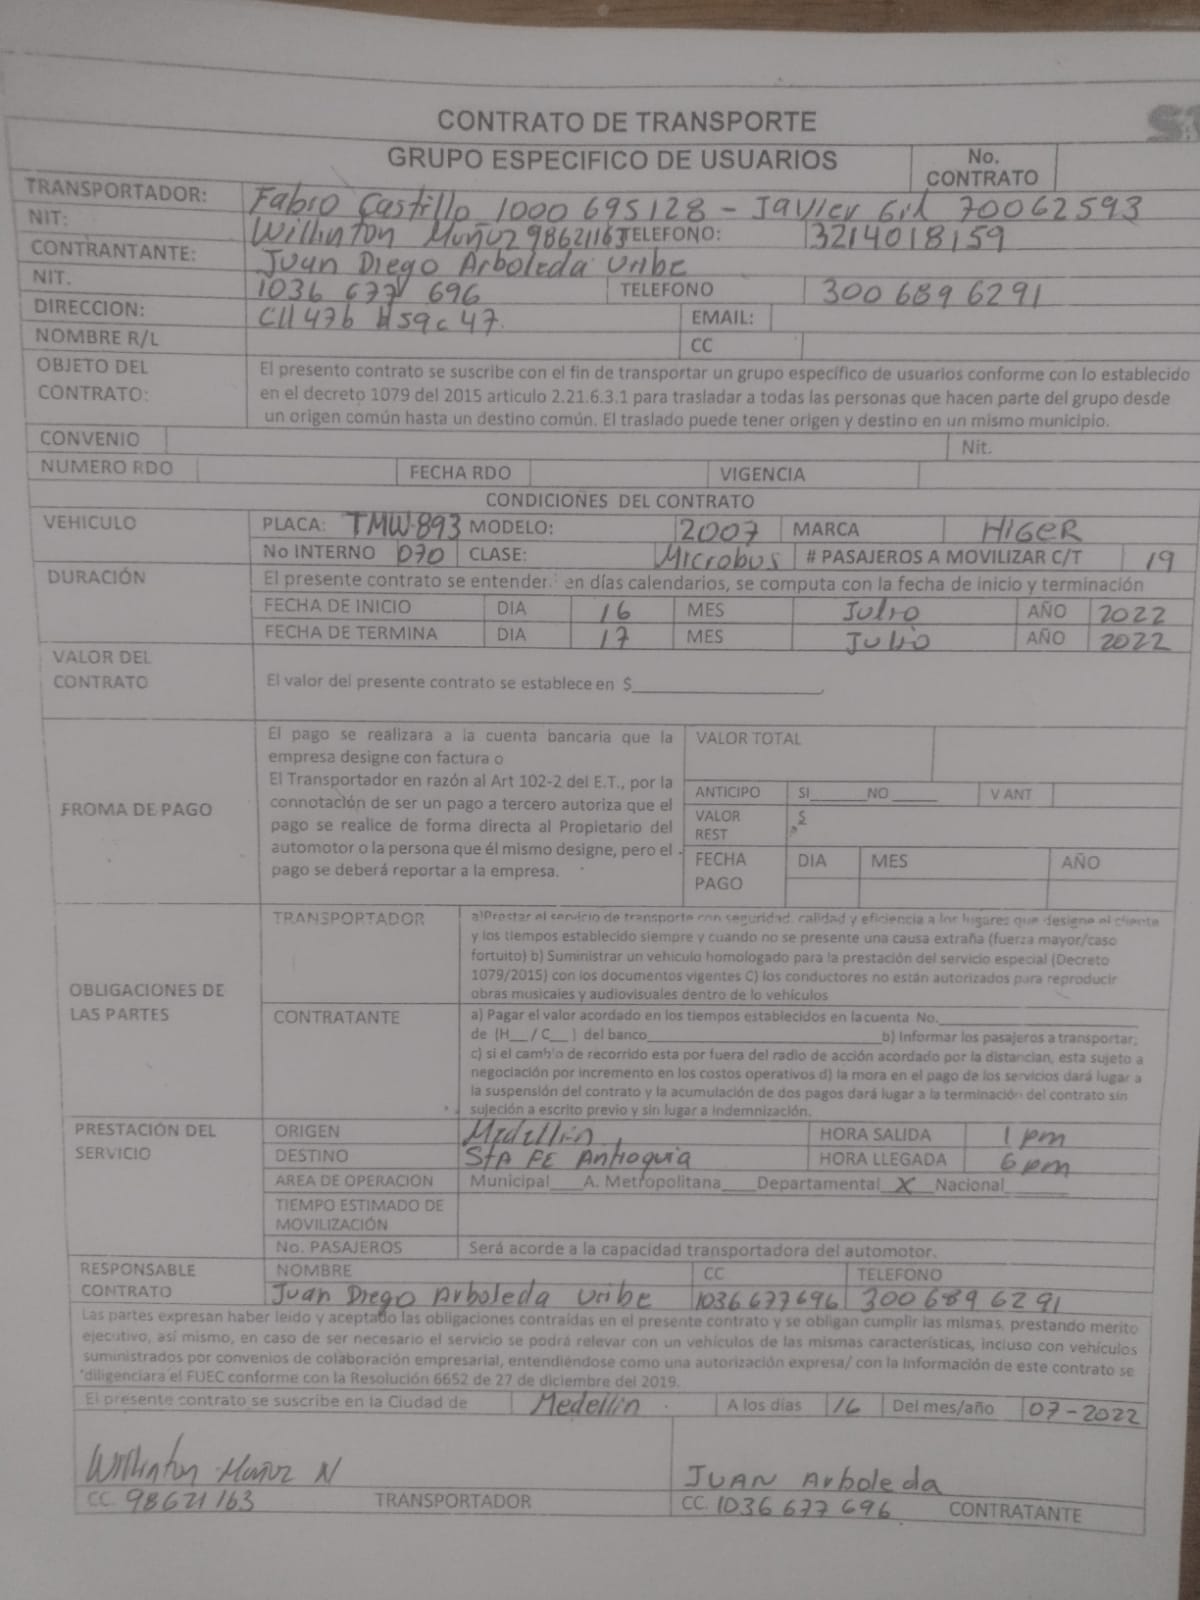 CONTRATO DE TRANSPORTE
GRUPO ESPECIFICO DE USUARIOS No. CONTRATO
TRANSPORTADOR: Fabio Castillo 1000 695128 - Javier Gil 70062593
NIT: Willinton Muñoz 98621163 TELEFONO: 3214018159
CONTRANTANTE: Juan Diego Arboleda Uribe
NIT. 1036 677 696 TELEFONO 300 689 6291
DIRECCION: Cll 47b #59c 47. EMAIL:
NOMBRE R/L CC
OBJETO DEL CONTRATO: El presento contrato se suscribe con el fin de transportar un grupo específico de usuarios conforme con lo establecido
en el decreto 1079 del 2015 articulo 2.21.6.3.1 para trasladar a todas las personas que hacen parte del grupo desde
un origen común hasta un destino común. El traslado puede tener origen y destino en un mismo municipio.
CONVENIO Nit.
NUMERO RDO FECHA RDO VIGENCIA
CONDICIONES DEL CONTRATO
VEHICULO PLACA: TMW-893 MODELO: 2007 MARCA HIGER
No INTERNO 070 CLASE: Microbus # PASAJEROS A MOVILIZAR C/T 19
DURACIÓN El presente contrato se entender. en días calendarios, se computa con la fecha de inicio y terminación
FECHA DE INICIO DIA 16 MES Julio AÑO 2022
FECHA DE TERMINA DIA 17 MES Julio AÑO 2022
VALOR DEL CONTRATO El valor del presente contrato se establece en $
FROMA DE PAGO
El pago se realizara a la cuenta bancaria que la
empresa designe con factura o
El Transportador en razón al Art 102-2 del E.T., por la
connotación de ser un pago a tercero autoriza que el
pago se realice de forma directa al Propietario del
automotor o la persona que él mismo designe, pero el
pago se deberá reportar a la empresa.
VALOR TOTAL
ANTICIPO SI______NO______ V ANT
VALOR REST $
FECHA PAGO DIA MES AÑO
OBLIGACIONES DE LAS PARTES
TRANSPORTADOR a)Prestar el servicio de transporte con seguridad, calidad y eficiencia a los lugares que designe el cliente
y los tiempos establecido siempre y cuando no se presente una causa extraña (fuerza mayor/caso
fortuito) b) Suministrar un vehículo homologado para la prestación del servicio especial (Decreto
1079/2015) con los documentos vigentes C) los conductores no están autorizados para reproducir
obras musicales y audiovisuales dentro de lo vehículos
CONTRATANTE a) Pagar el valor acordado en los tiempos establecidos en la cuenta No.
de (H__/C__) del banco________________b) Informar los pasajeros a transportar;
c) si el cambio de recorrido esta por fuera del radio de acción acordado por la distancian, esta sujeto a
negociación por incremento en los costos operativos d) la mora en el pago de los servicios dará lugar a
la suspensión del contrato y la acumulación de dos pagos dará lugar a la terminación del contrato sin
sujeción a escrito previo y sin lugar a indemnización.
PRESTACIÓN DEL SERVICIO
ORIGEN Medellin HORA SALIDA 1 pm
DESTINO Sta FE Antioquia HORA LLEGADA 6 pm
AREA DE OPERACION Municipal____A. Metropolitana____Departamental X Nacional
TIEMPO ESTIMADO DE MOVILIZACIÓN
No. PASAJEROS Será acorde a la capacidad transportadora del automotor.
RESPONSABLE CONTRATO NOMBRE CC TELEFONO
Juan Diego Arboleda Uribe 1036677696 300 689 6291
Las partes expresan haber leído y aceptado las obligaciones contraídas en el presente contrato y se obligan cumplir las mismas, prestando merito
ejecutivo, así mismo, en caso de ser necesario el servicio se podrá relevar con un vehículos de las mismas características, incluso con vehículos
suministrados por convenios de colaboración empresarial, entendiéndose como una autorización expresa/ con la Información de este contrato se
diligenciara el FUEC conforme con la Resolución 6652 de 27 de diciembre del 2019.
El presente contrato se suscribe en la Ciudad de Medellin A los días 16 Del mes/año 07-2022
Willinton Muñoz N JUAN Arboleda
CC. 98621163 TRANSPORTADOR CC. 1036 677 696 CONTRATANTE